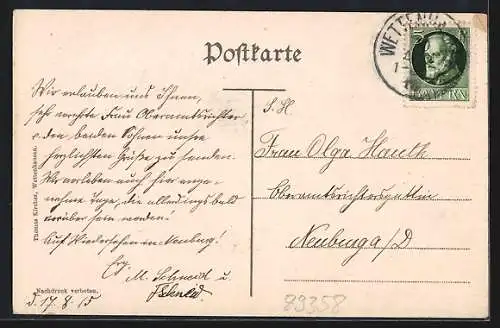 Postkarte
WETTENH
BAYERN
Wir erlauben uns Ihnen,
sehr verehrte Frau Oberamtsrichter
u. den beiden Söhnen unsre
herzlichsten Grüße zu senden.
Wir verleben auch hier ange-
nehme Tage, die allerdings bald
vorüber sein werden!
Auf Wiedersehen in Neuburg!
M. Schmid u.
d. 17. 8. 15
S. H.
Frau Olga Hauth
Oberamtsrichtersgattin
Neuburg a/D
Thomas Kircher, Wettenhausen.
Nachdruck verboten.
89358